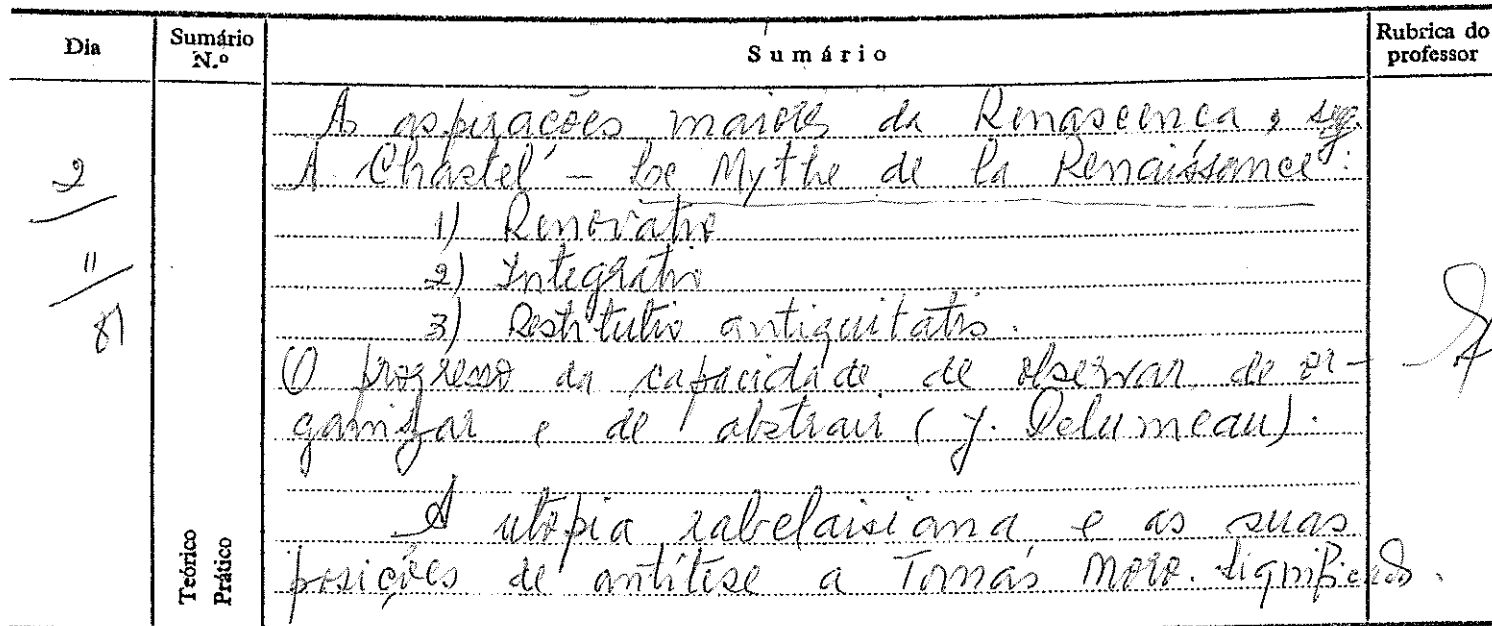 Dia
Sumário N.º
Sumário
Rubrica do professor
2
11
81
As aspirações maiores da Renascença, seg.
A. Chastel – Le Mythe de la Renaissance:
1) Renovatio
2) Integratio
3) Restitutio antiquitatis.
O progresso da capacidade de observar, de or-
ganizar e de abstrair (J. Delumeau).
A utopia rabelaisiana e as suas
posições de antítese a Tomás Moro. Significado.
Teórico
Prático